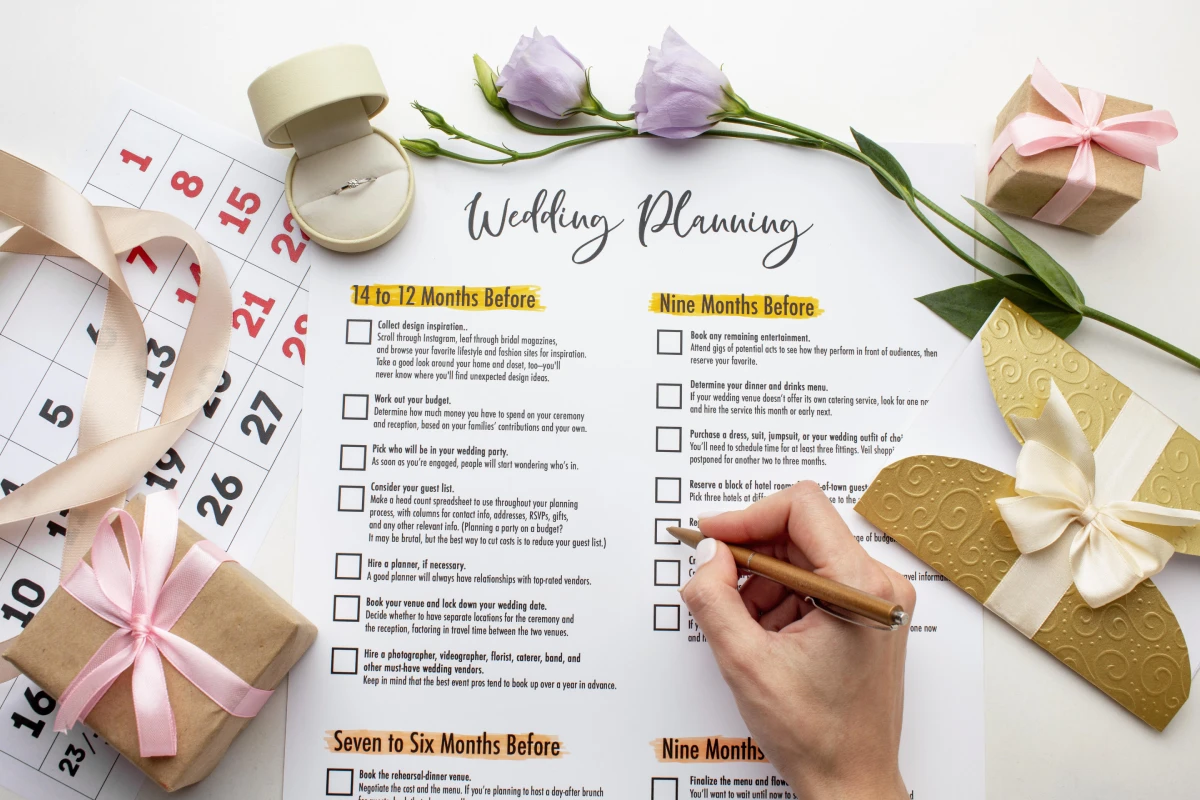 Wedding Planning
14 to 12 Months Before
Collect design inspiration..
Scroll through Instagram, leaf through bridal magazines,
and browse your favorite lifestyle and fashion sites for inspiration.
Take a good look around your home and closet, too—you'll
never know where you'll find unexpected design ideas.
Work out your budget.
Determine how much money you have to spend on your ceremony
and reception, based on your families' contributions and your own.
Pick who will be in your wedding party.
As soon as you're engaged, people will start wondering who's in.
Consider your guest list.
Make a head count spreadsheet to use throughout your planning
process, with columns for contact info, addresses, RSVPs, gifts,
and any other relevant info. (Planning a party on a budget?
It may be brutal, but the best way to cut costs is to reduce your guest list.)
Hire a planner, if necessary.
A good planner will always have relationships with top-rated vendors.
Book your venue and lock down your wedding date.
Decide whether to have separate locations for the ceremony and
the reception, factoring in travel time between the two venues.
Hire a photographer, videographer, florist, caterer, band, and
other must-have wedding vendors.
Keep in mind that the best event pros tend to book up over a year in advance.
Seven to Six Months Before
Book the rehearsal-dinner venue.
Negotiate the cost and the menu. If you're planning to host a day-after brunch
Nine Months Before
Book any remaining entertainment.
Attend gigs of potential acts to see how they perform in front of audiences, then
reserve your favorite.
Determine your dinner and drinks menu.
If your wedding venue doesn't offer its own catering service, look for one
and hire the service this month or early next.
Purchase a dress, suit, jumpsuit, or your wedding outfit of
You'll need to schedule time for at least three fittings. Veil
postponed for another two to three months.
Reserve a block of hotel
Pick three hotels at
to the
of
travel
one now
Nine Months
Finalize the menu and
You'll want to wait until now to
1
8
15
22
7
14
21
6
13
20
27
5
19
26
10
16
23